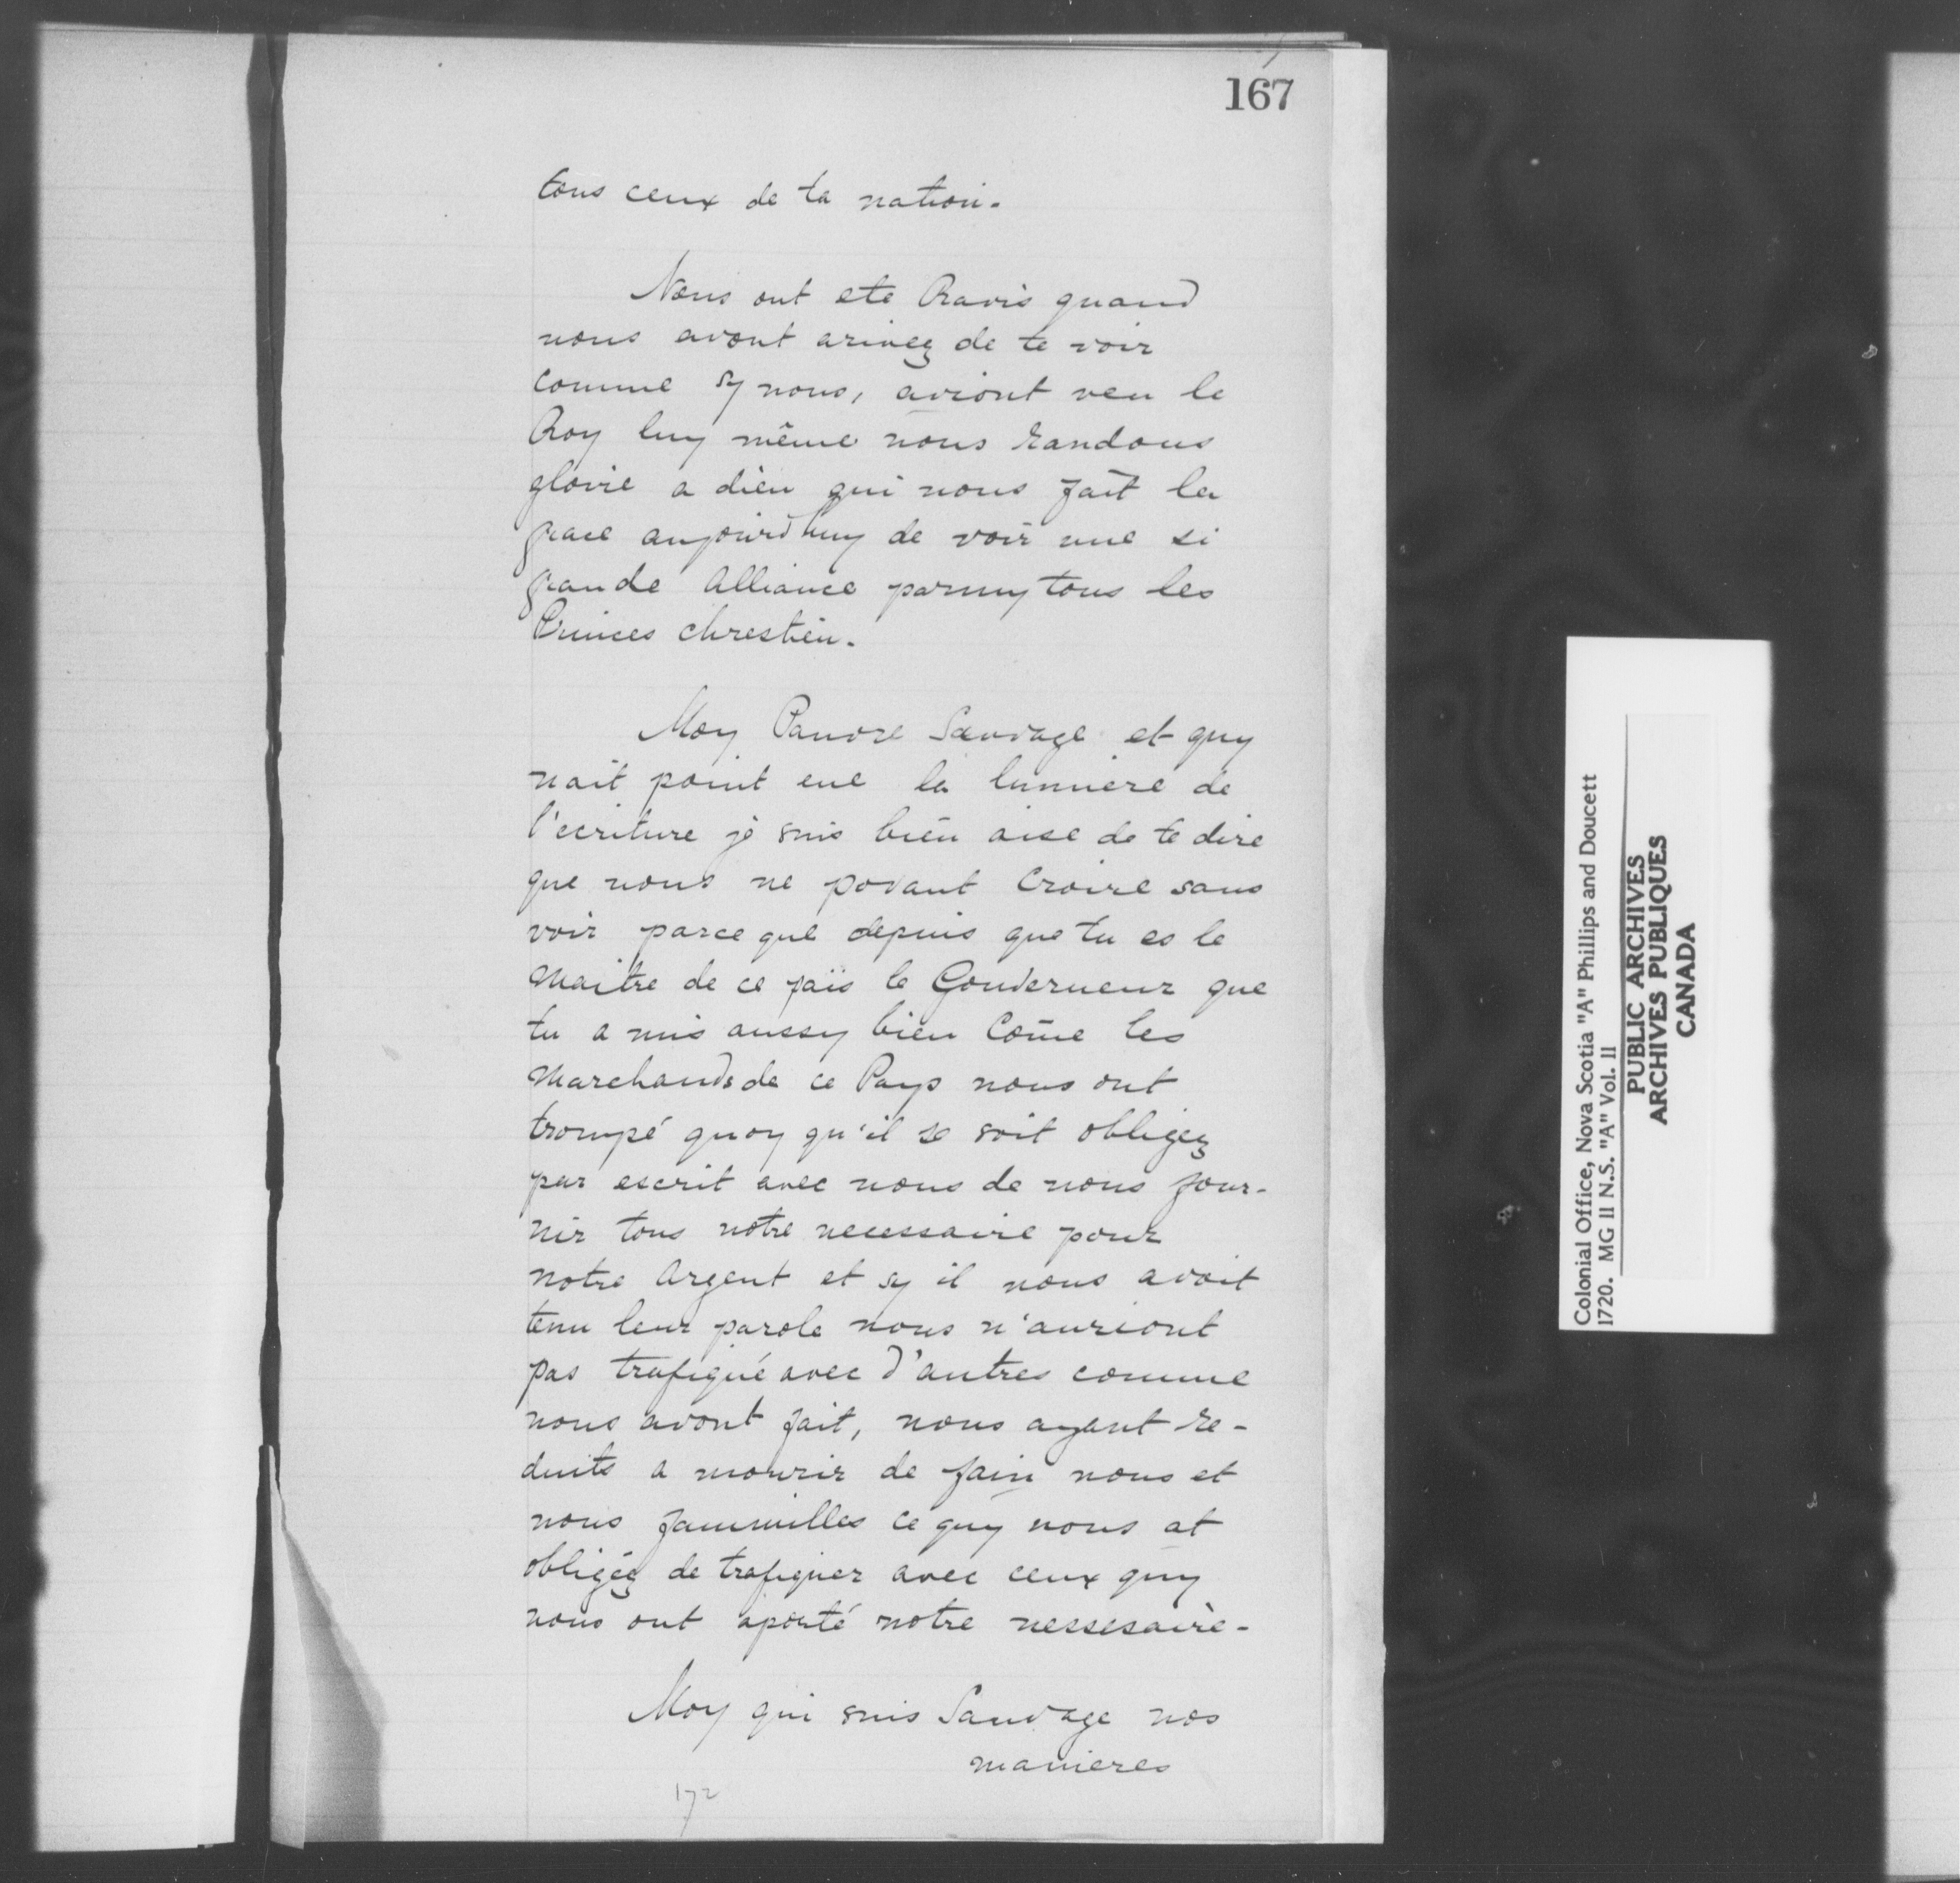 167
tous ceux de ta nation.
Nous ont ete Ravis quand
nous avont arivez de te voir
comme sy nous, aviont veu le
Roy luy même nous randons
gloire a dieu qui nous fait la
grace aujourd huy de voir une si
grande Alliance parmy tous les
Princes chrestien.
Moy Pauvre Sauvage et quy
nait point eue la lumiere de
l'ecriture je suis bien aise de te dire
que nous ne povant Croire sans
voir parce que depuis que tu es le
Maitre de ce païs le Gouverneur que
tu a mis aussy bien Come les
Marchands de ce Pays nous ont
trompé quoy qu'il se soit obligez
par escrit avec nous de nous four-
nir tous notre necessaire pour
notre Argent et sy il nous avoit
tenu leur parole nous n'auriont
pas trafiqué avec d'autres comme
nous avont fait, nous ayant re-
duits a mourir de fain nous et
nous fammilles ce quy nous at
obligéz de trafiquer avec ceux quy
nous ont aporté notre nessesaire-
Moy qui suis Sauvage nos
manieres
172
Colonial Office, Nova Scotia "A" Phillips and Doucett
1720. MG 11 N.S. "A" Vol. 11
PUBLIC ARCHIVES
ARCHIVES PUBLIQUES
CANADA